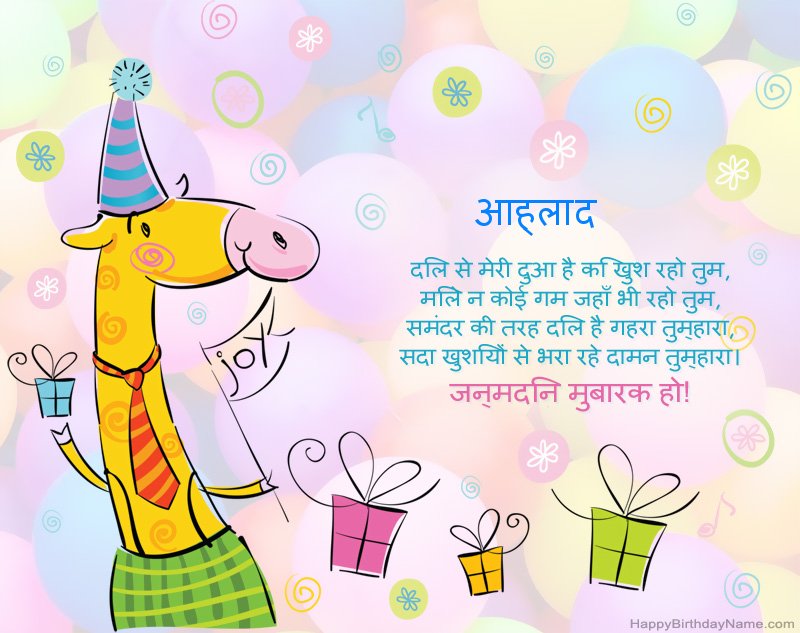 आह्लाद
दिल से मेरी दुआ है कि खुश रहो तुम,
मिले न कोई गम जहाँ भी रहो तुम,
समंदर की तरह दिल है गहरा तुम्हारा,
सदा खुशियों से भरा रहे दामन तुम्हारा।
जन्मदिन मुबारक हो!
joy
HappyBirthdayName.com